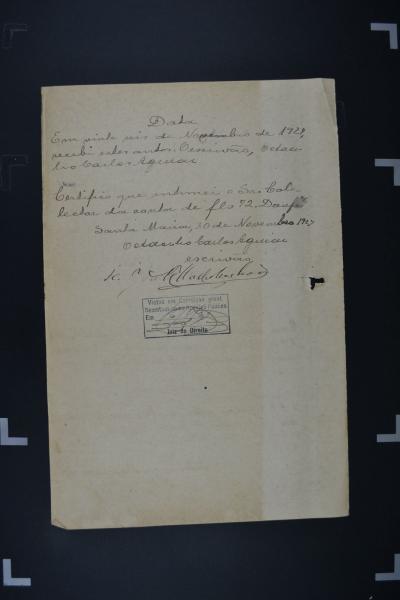 Data
Em vinte seis de Novembro de 1927,
recebi estes autos. O escrivão, Octaci-
lio Carlos Aguiar
Certifico que intimei o Snr. Col-
lector da conta de fls 72. Dou fé
Santa Maria, 30 de Novembro 1927
Octacilio Carlos Aguiar
escrivão
Vistos em Correição geral.
Em
Juiz de Direito